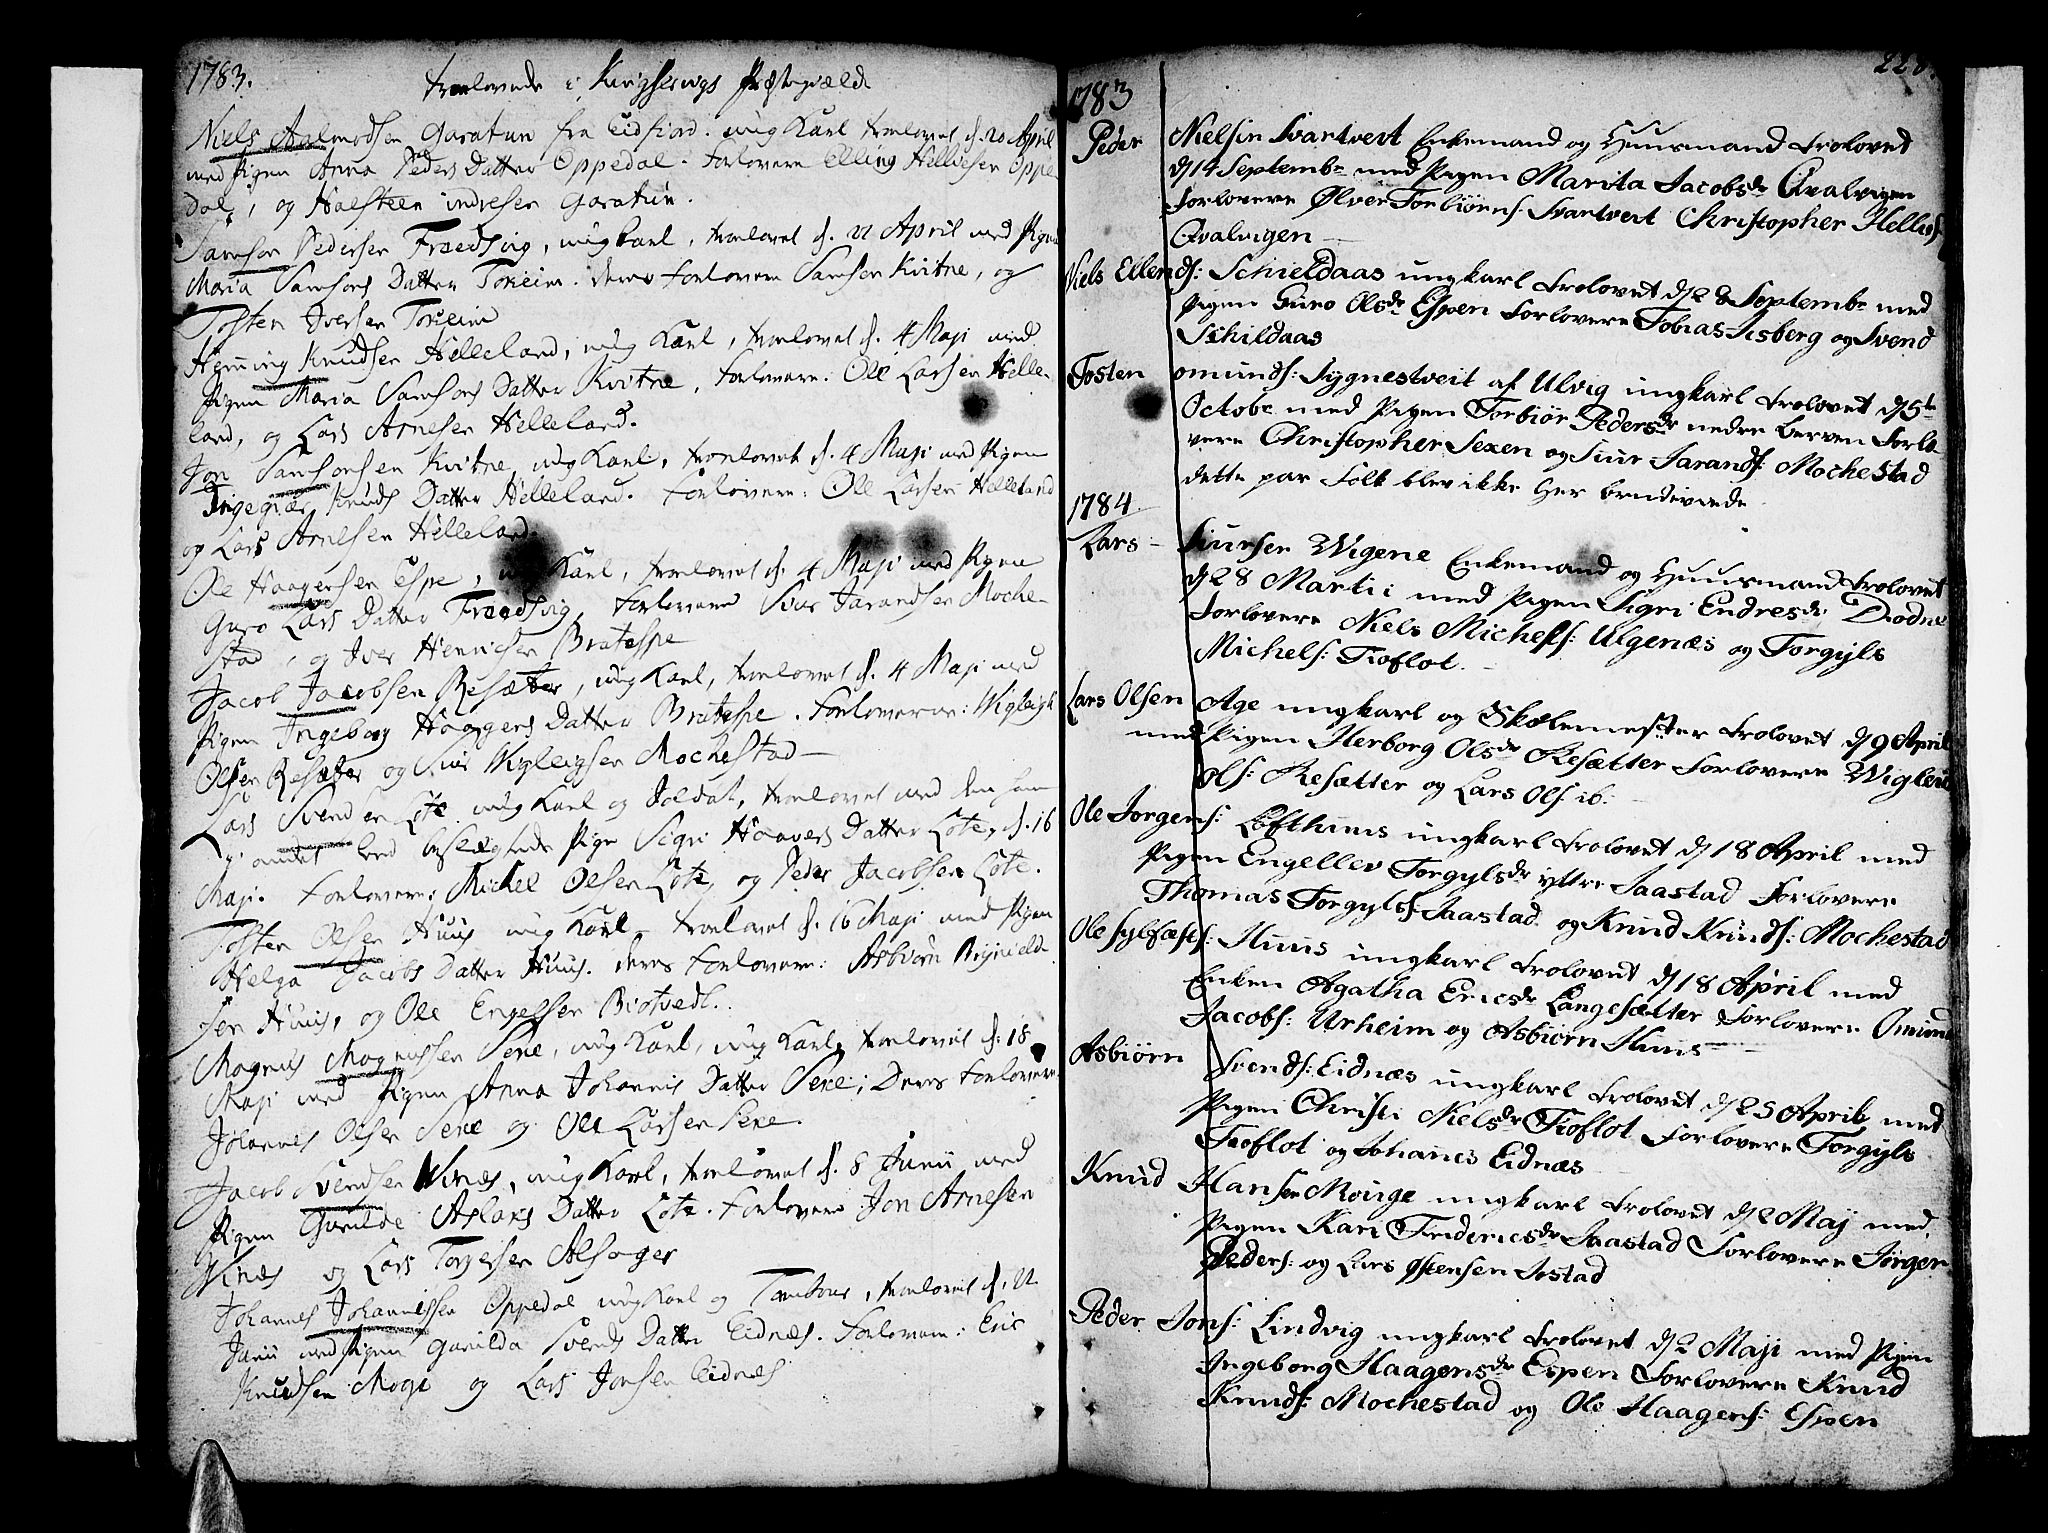 1783.
troelovede i Kingservigs Præstegiæld
Niels Aalmodsen Garatun fra Eidfiord. ung Karl troelovet d. 20 April
med Pigen Anna Peders Datter Oppedal. Forlovere Elling Helliesen Oppe-
dal, og Halsteen Garatun.
Samson Pedersen Fraedsvig, ung Karl, troelovet d. 21 April med Pigen
Maria Samsons Datter Tokeim. deres Forlovere Samson Kvitne, og
Tosten Iversen Tokeim
Hemming Knudsen Helleland, ung Karl, troelovet d. 4 Maji med
Pigen Maria Samsons Datter Kvitne, Forlovere: Ole Larsen Helle-
land, og Lars Arnesen Helleland.
Jon Samsonsen Kvitne, ung Karl, troelovet d. 4 Maji med Pigen
Ingegiær Knuds Datter Helleland. Forlovere: Ole Larsen Helleland
og Lars Arnesen Helleland.
Ole Haagensen Espe, ung Karl, troelovet d. 4 Maji med Pigen
Guro Lars Datter Fraedsvig, Forlovere Siur Jarandsen Moche-
stad, og Iver Henricsen Bratespe
Jacob Jacobsen Resæter, ung Karl, troelovet d. 4 Maji med
Pigen Ingeborg Haagens Datter Bratespe. Forlovere: Wigleigh
Olsen Resæter og Siur Wigleigsen Mochestad
Lars Svendsen Lote ung Karl og Soldat, troelovet med den ham
i andet Leed beslegtede Pige Sigri Haavers Datter Lote, d. 16
Maji. Forlovere: Michel Olsen Lote, og Peder Jacobsen Lote.
Tosten Olsen Huus ung Karl troelovet d. 16 Maji med Pigen
Helga Jacobs Datter Huus. deres Forlovere: Asbiørn
sen Huus, og Ole Engelsen Biotvedt.
Magnus Magnussen Sexe, ung Karl, ung Karl, troelovet d. 18
Maji med Pigen Anna Johannis Datter Sexe; Deres Forlovere
Johannes Olsen Sexe og Ole Larsen Sexe.
Jacob Svendsen Winæs, ung Karl, troelovet d. 8 Junii med
Pigen Gunilde Aslaks Datter Lote. Forlovere Jon Arnesen
Winæs og Lars Torgersen Alsager
Johannes Johannissen Oppedal ung Karl og Tambour, troelovet d. 22
Junii med Pigen Gunilda Svends Datter Eidnæs. Forlovere: Eric
Knudsen Moge og Lars Jonsen Eidnæs
1783
Peder Nielsen Svartvert Enkemand og Huusmand trolovet
d 14 Septembr med Pigen Marita Jacobsdr Qvalvigen
Forlovere Ølver Torbiørns: Svartvert Christopher Hellies:
Qvalvigen
Niels Ellends: Schieldaas ungkarl trolovet d 28 Septembr med
Pigen Guro Olsdr Espen Forlovere Tobias Aisberg og Svend
Schildaas
Tosten omunds: Sygnestveit af Ulvig ungkarl trolovet d 5te
Octobr med Pigen Torbiør Pedersdr nedre Berven Forlo
vere Christopher Sexen og Siur Jarands: Mochestad
dette par Folk blev ikke her
1784.
Lars Siursen Wigene Enkemand og Huusmand trolovet
d 28 Martii med Pigen Sigri Endresdr Diodne
Forlovere Niels Michels: Ulgenæs og Torgyls
Michels: Tioflot.
Lars Olsen Age ungkarl og Skolemester trolovet d 9 April
med Pigen Herborg Olsdr Resætter Forlovere Wigleeg
Ols: Resætter og Lars Ols: ib:
Ole Jorgens: Lofthuus ungkarl trolovet d 18 April med
Pigen Engellev Torgylsdr yttre Jaastad Forlovere
Thomas Torgyls: Jaastad og Knud Knuds: Mochestad
Ole Sylfæsts: Huus ungkarl trolovet d 18 April med
Enken Agatha Ericsdr Langesætter Forlovere Omund
Jacobs: Urheim og Asbiørn Huus
Asbiørn Svends: Eidnæs ungkarl trolovet d 25 April med
Pigen Christi Nielsdr Tioflot Forlovere Torgyls
Tioflot og Johanes Eidnæs
Knud Hansen Mouge ungkarl trolovet d 2 Maj med
Pigen Kari Fridericsdr Jaastad Forlovere Jørgen
Peders: og Lars Østensen Jostad
Peder Jons: Lindvig ungkarl trolovet d 2 Maji med Pigen
Ingeborg Haagensdr Espen Forlovere Knud
Knuds: Mochestad og Ole Haagens: Espen